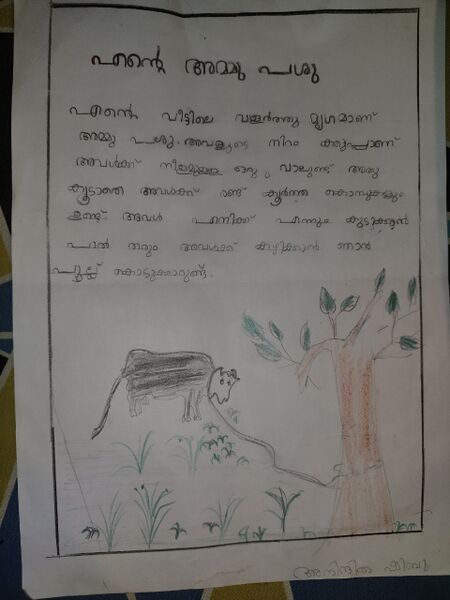 എന്റെ അമ്മു പശു
എന്റെ വീട്ടിലെ വളർത്തു മൃഗമാണ്
അമ്മു പശു. അവളുടെ നിറം കറുപ്പാണ്
അവൾക്ക് നീളമുള്ള ഒരു വാലുണ്ട് അതു
കൂടാതെ അവൾക്ക് രണ്ട് കൂർത്ത കൊമ്പുകളും
ഉണ്ട് അവൾ എനിക്ക് എന്നും കുടിക്കുൻ
പാൽ തരും അവൾക്ക് കഴിക്കാൻ ഞാൻ
പുല്ല് കൊടുക്കാറുണ്ട്.
അനിന്ദിത ഷിബു